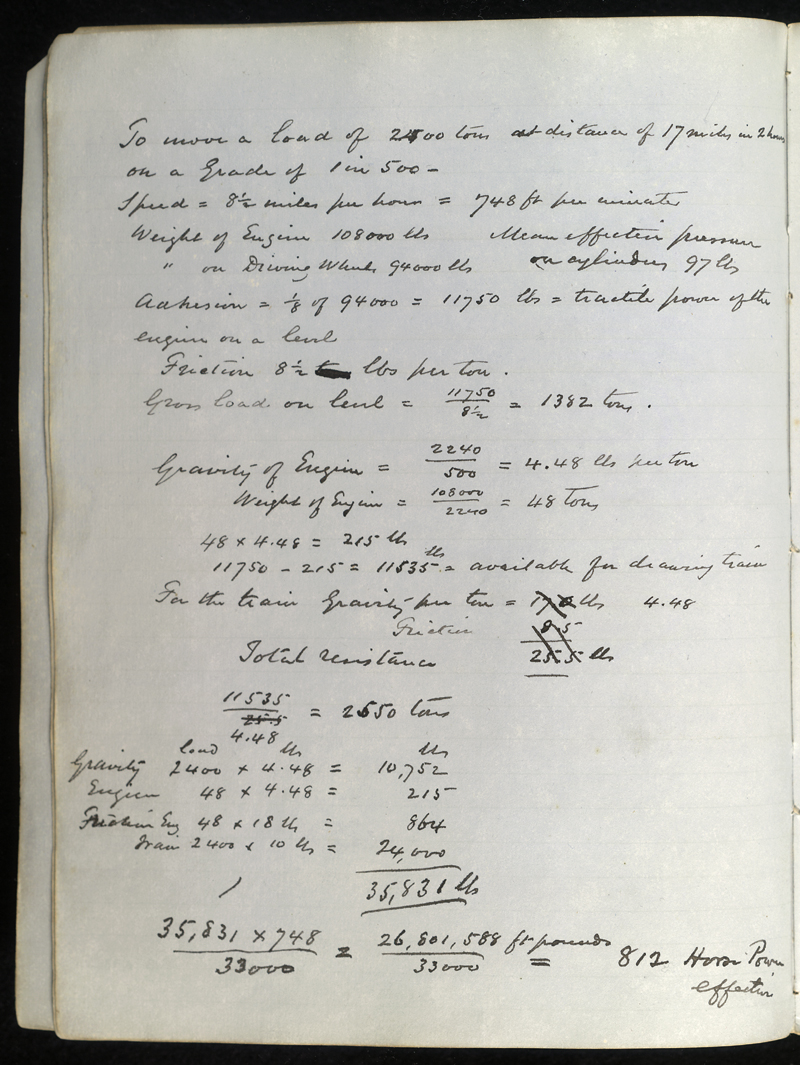 To move a load of 2400 tons at distance of 17 miles in 2 hours
on a Grade of 1 in 500 -
Speed = 8½ miles per hour = 748 ft per minute
Weight of Engine 108000 lbs Mean effective pressure
" on Driving Wheels 94000 lbs on cylinders 97 lbs
Adhesion = ⅛ of 94000 = 11750 lbs = tractile power of the
engine on a level
Friction 8½ lbs per ton.
Gross load on level = 11750/8½ = 1382 tons.
Gravity of Engine = 2240/500 = 4.48 lbs per ton
Weight of Engine = 108000/2240 = 48 tons
48 x 4.48 = 215 lbs
11750 - 215 = 11535 lbs = available for drawing train
For the train Gravity per ton = 17.0 lbs 4.48
Friction 8.5
Total resistance 25.5 lbs
11535/25.5 = 2550 tons
4.48
load lbs lbs
Gravity 2400 x 4.48 = 10,752
Engine 48 x 4.48 = 215
Friction Eng 48 x 18 lbs = 864
train 2400 x 10 lbs = 24,000
35,831 lbs
35,831 x 748/33000 = 26,801,588 ft pounds/33000 = 812 Horse Power
effective